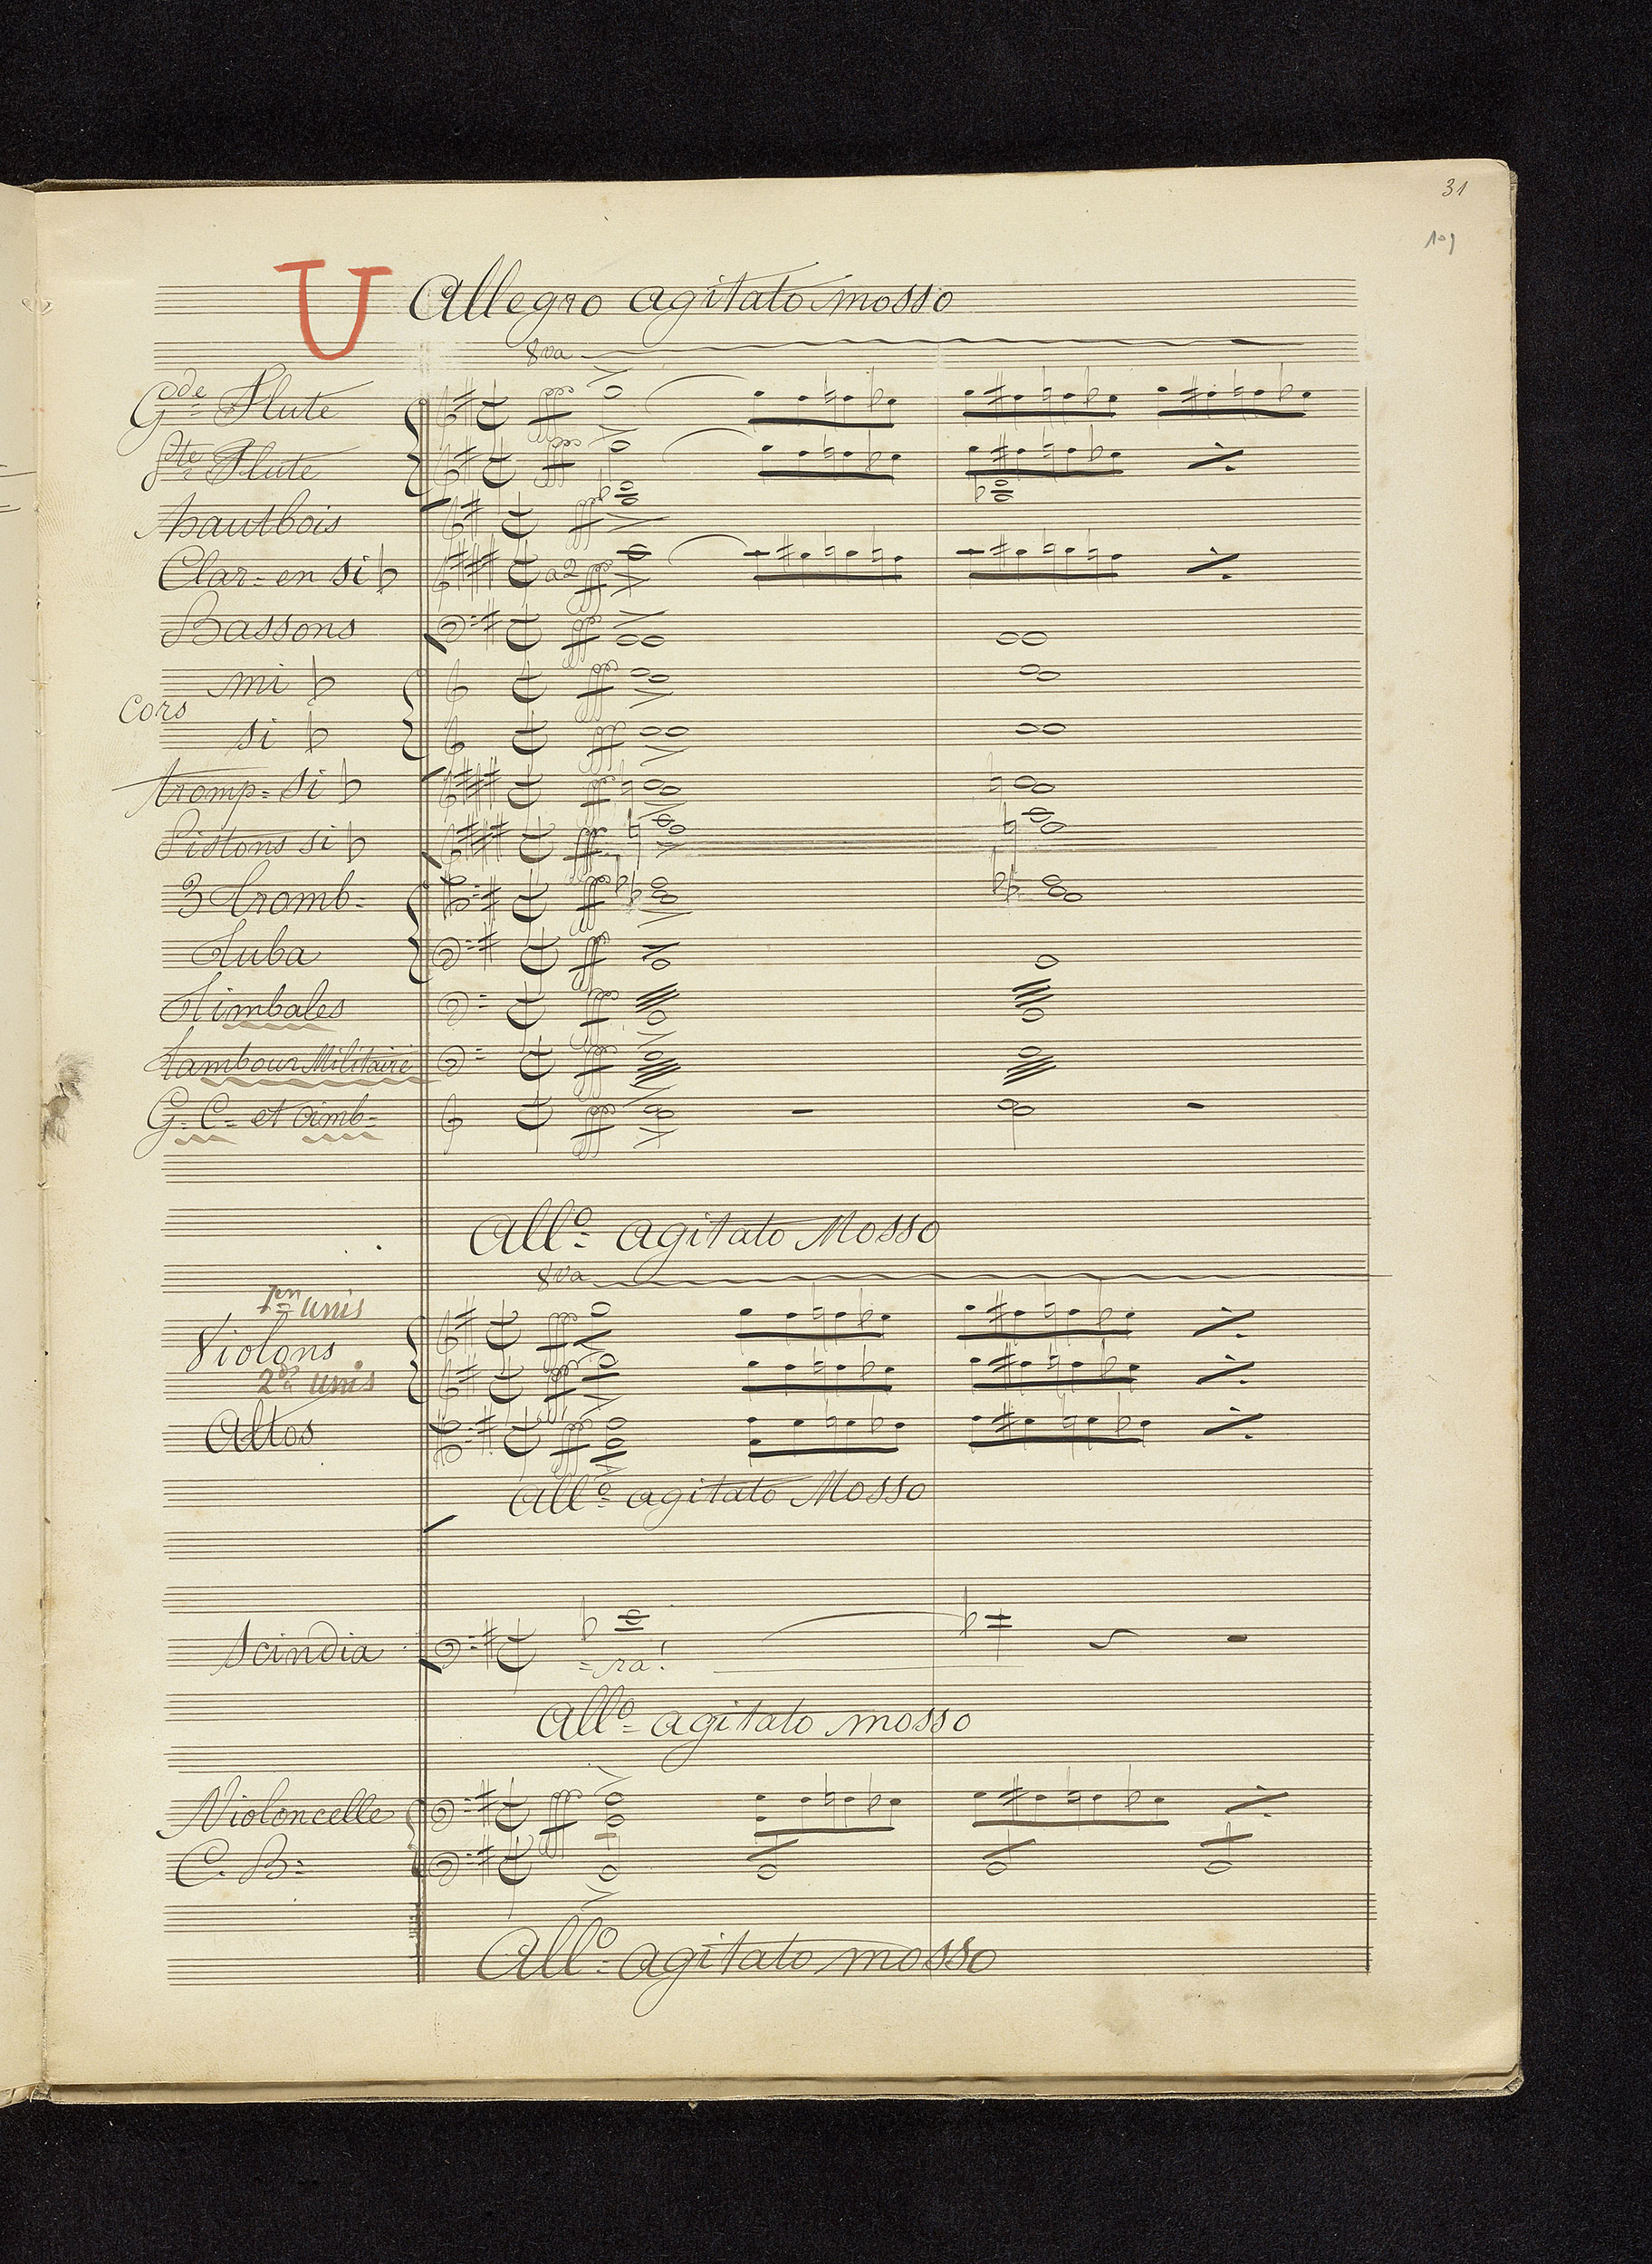 31
109
U Allegro agitato mosso
8va
Gde Flute
pte Flute
hautbois
Clar= en si♭ a2 fff
Bassons fff
mi ♭ fff
Cors
si ♭ fff
tromp= si ♭ fff
Pistons si ♭ fff
3 tromb= fff
Tuba fff
Timbales fff
Tambour Militaire fff
G= C= et cimb= fff
All°= agitato Mosso
8va
1ers unis
Violons fff
2ds unis
Altos fff
All°= agitato Mosso
Scindia
=ra!
All°= agitato mosso
Violoncelle fff
C. B=
All°= agitato mosso